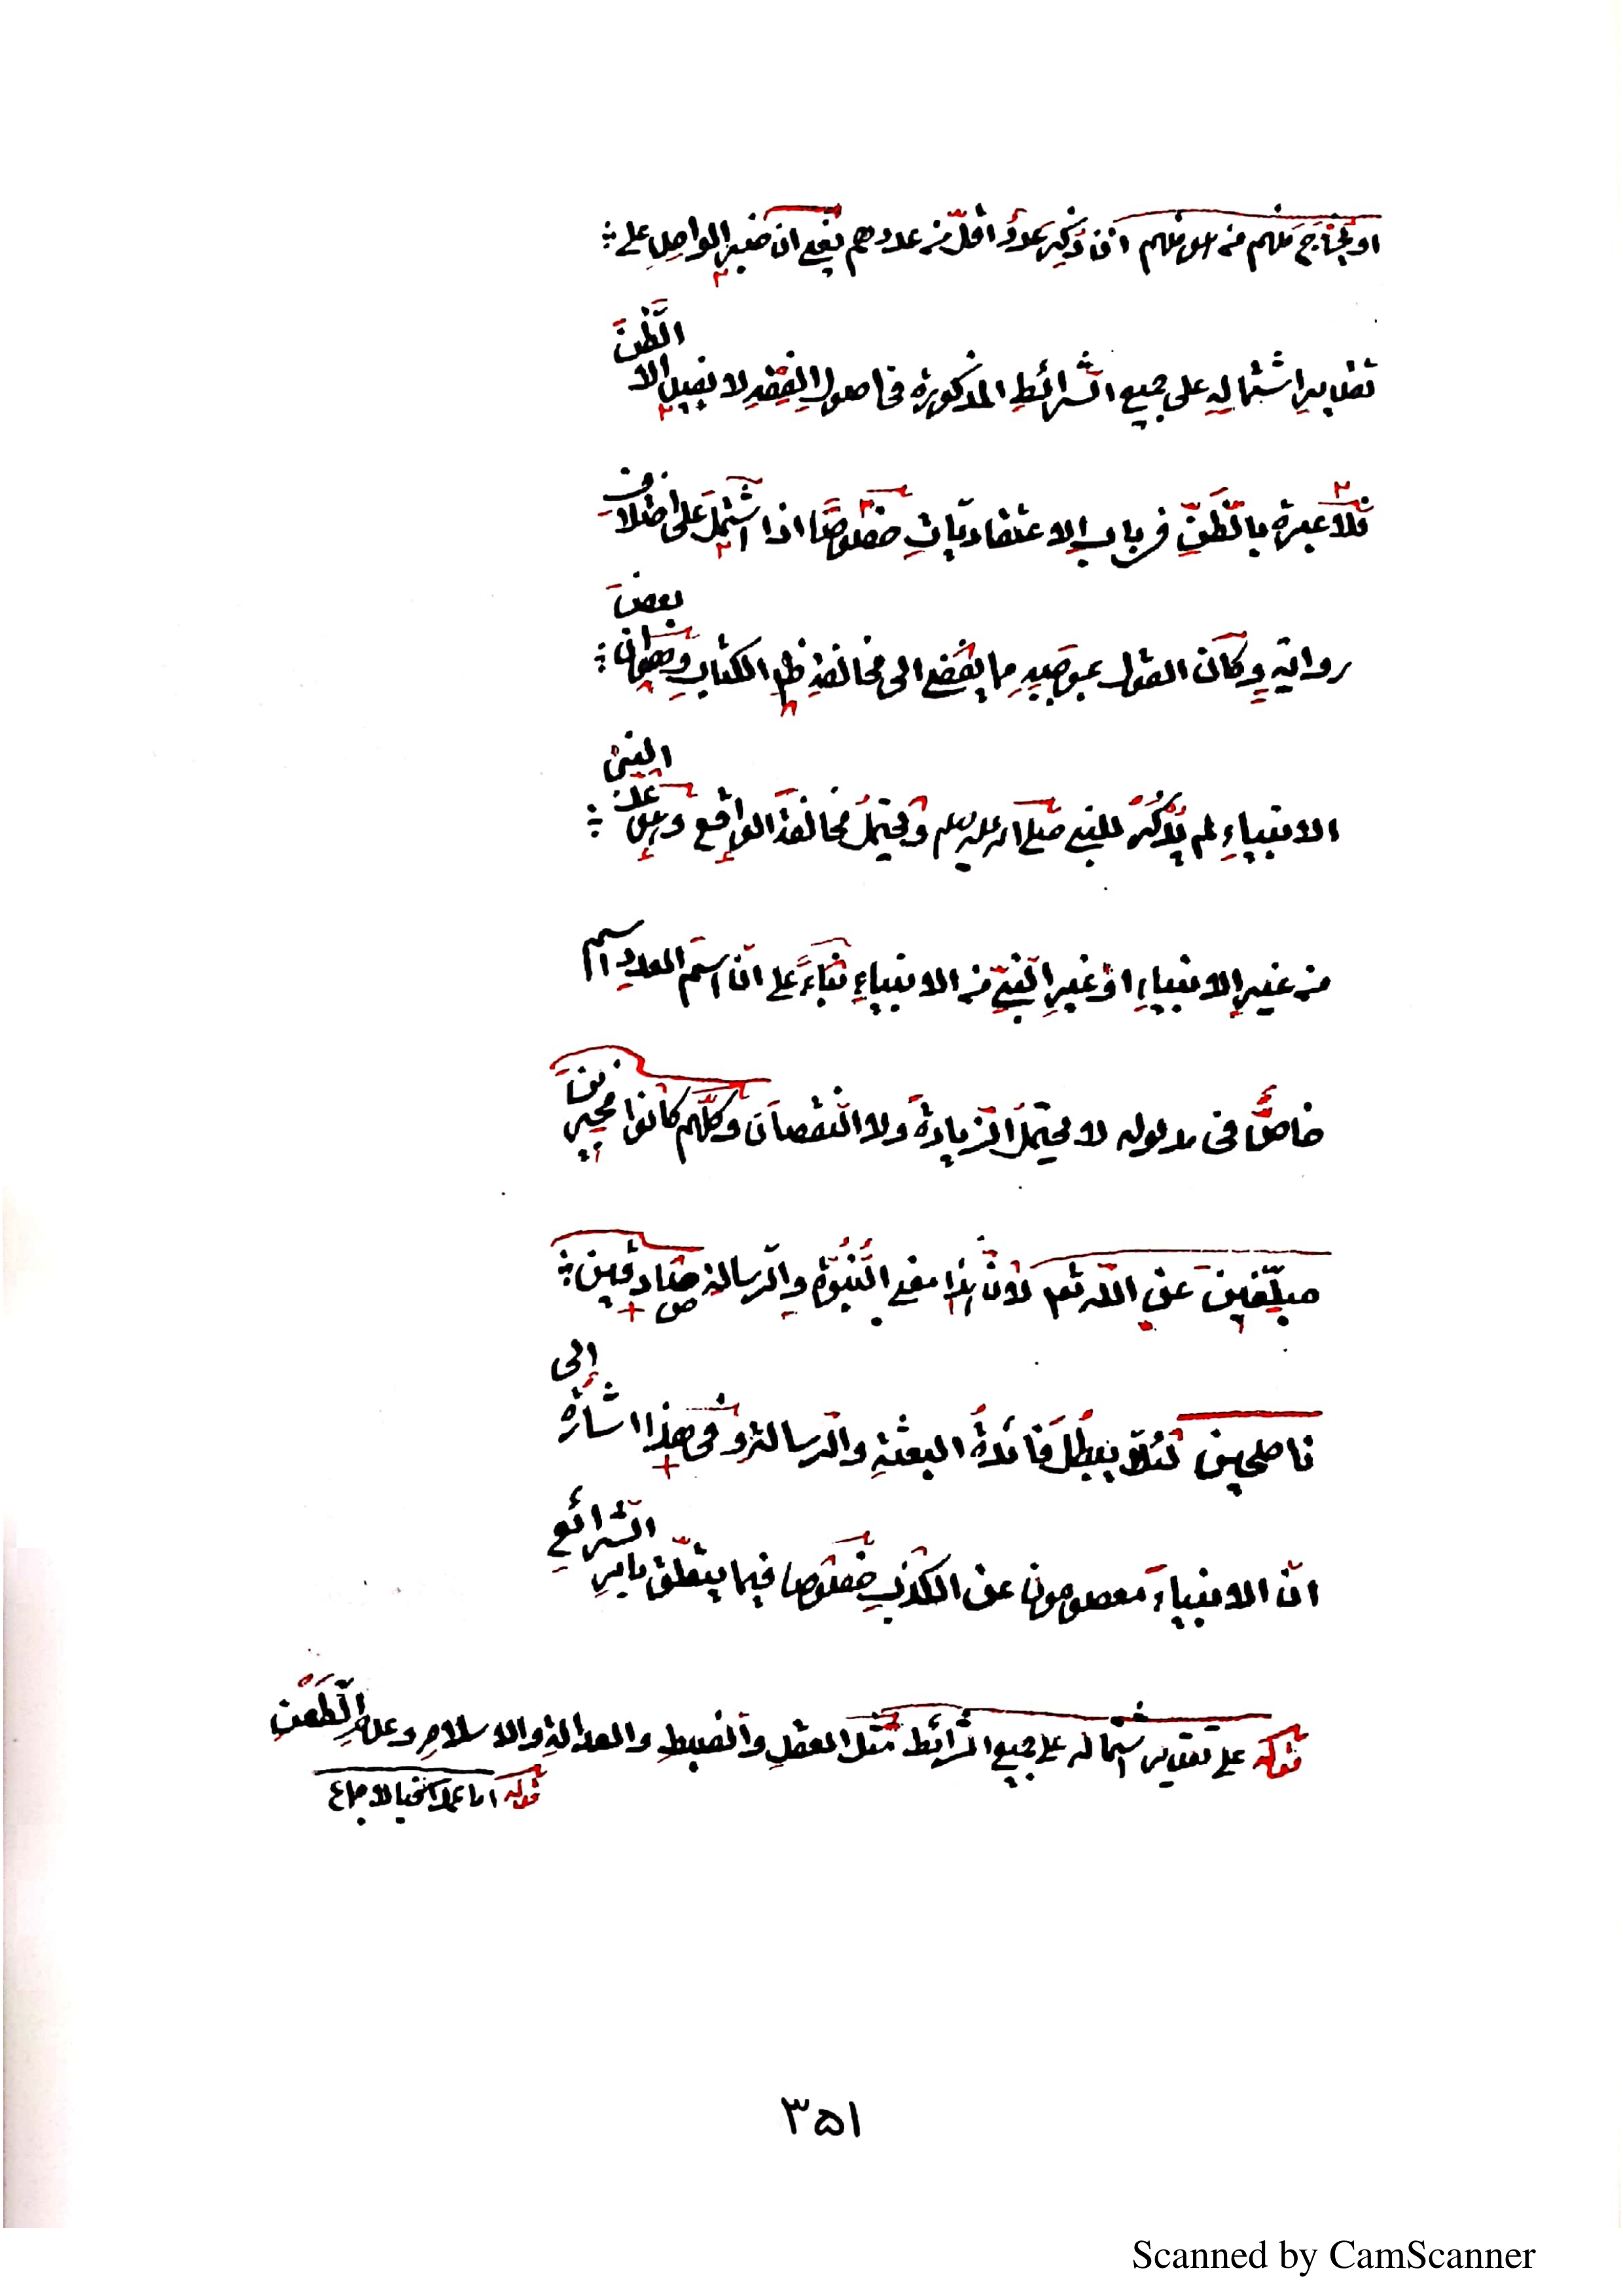 او يُخرَجَ منهم من هو منهم ان ذُكِرَ عددٌ اقلّ من عددهم يعني ان خبر الواحِدِ على
تقديرِ اشتمالِهِ على جميع الشّرائطِ المذكورة في اصولِ الفِقهِ لا يفيد الا الظّنَ
فلا عبرة بالظّنِّ في باب الاعتقاديّاتِ خصُوصًا اذا اشتمل على اختلاف
رواية وكان القول بموجَبِهِ مما يفضي الى مخالفةِ ظاهرِ الكتابِ وهو ان بعضَ
الانبياءِ لم يُذكَرْ للنبي صلى الله عليه وسلم ويحتملُ مخالفةَ الواقع وهو عدّ النبيّ
من غيرِ الانبياءِ او غيرِ النّبيِّ من الانبياءِ بناءً على انّ اسمَ العددِ اسم
خاصٌّ في مدلوله لا يحتملُ الزّيادةَ ولا النّقصانَ وكلّهم كانوا مخبرينَ
مبلّغينَ عن اللّه تعالى لانّ هذا معنى النُّبُوّةِ والرّسالة صَادقين
ناصحين لئلّا يبطُلَ فائدةُ البعثةِ والرّسالة وفي هذا اشارةٌ إلى
انّ الانبياءَ معصومون عن الكذبِ خصُوصا فيما يتعلّق بامرِ الشّرائعِ
قوله على تقدير اشتماله على جميع الشرائط مثل العقلِ والضبطِ والعدالةِ والاسلامِ وعدمِ الطّعنِ
قوله اما عمدا فبالاجماع
٣٥١
Scanned by CamScanner